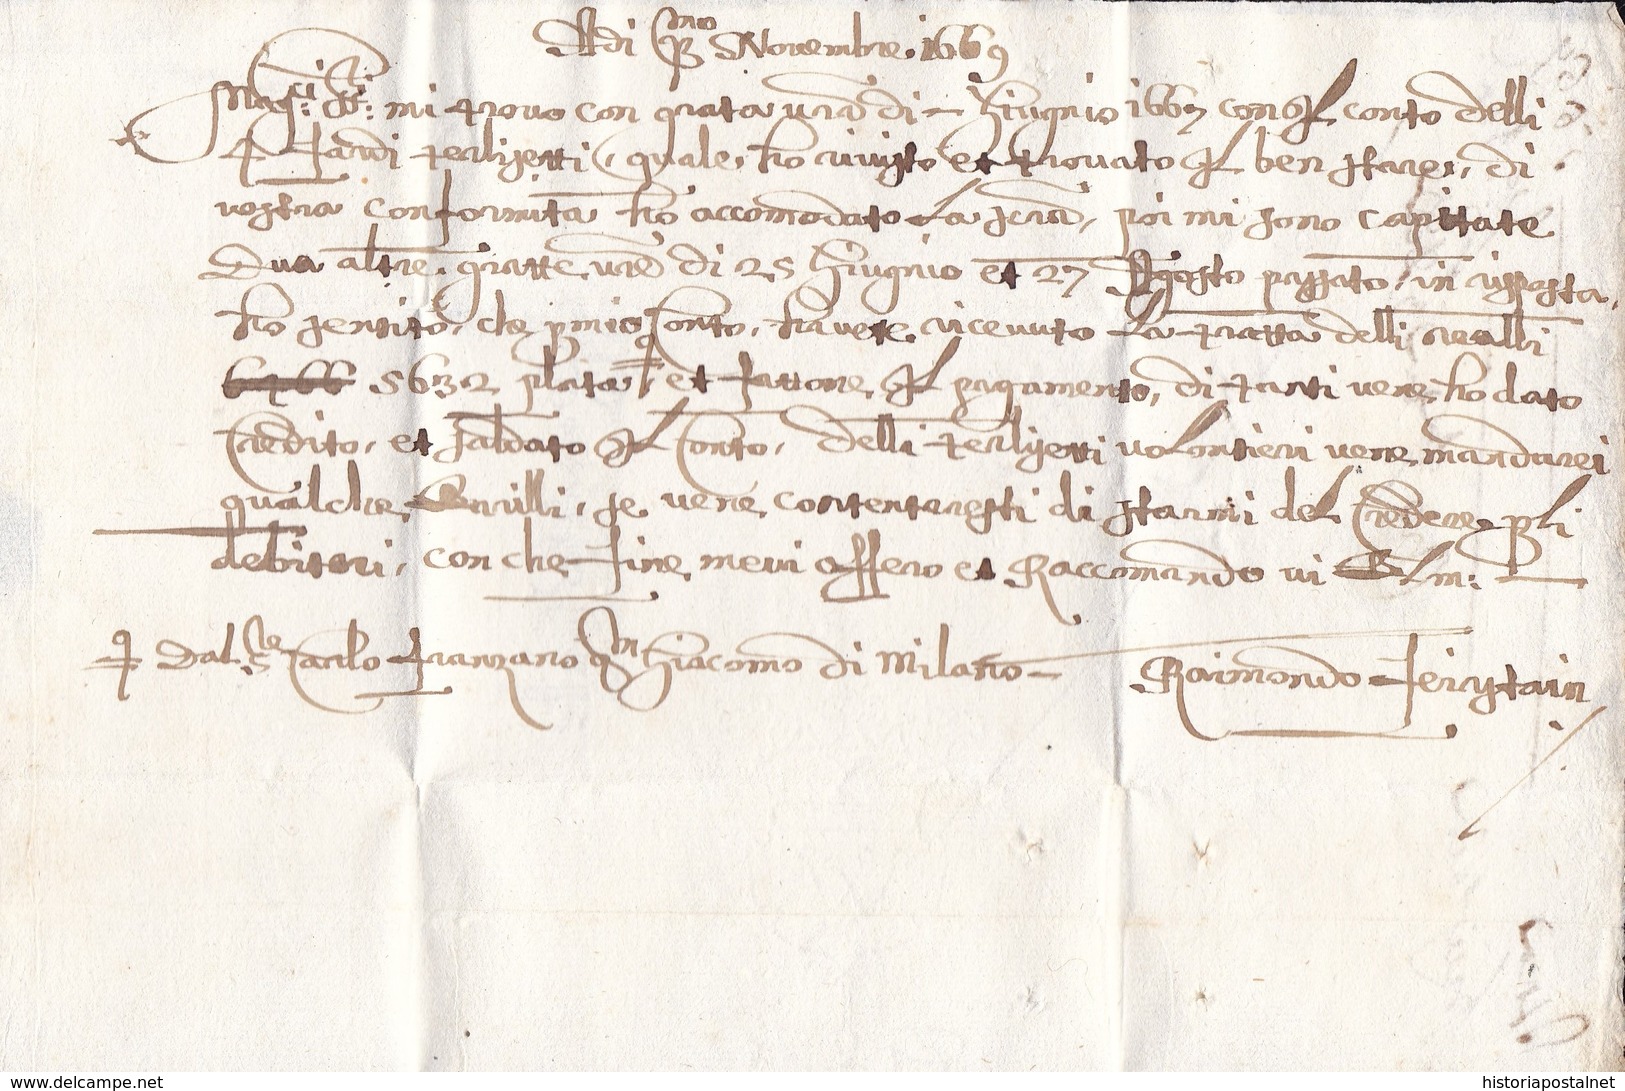 Adi p.mo Novembre 1669
Mag.ci S.ri mi trovo con grata vra di — Giugnio 1669 con il conto delli
quale ho visto et trovato il ben stare, di
vostra conformità ho accomodato la pena, poi mi sono capittate
Dua altre gratte vre di 25 Giugnio et 27 Agosto passato, in risposta
ho sentito, che p mio Conto, havete ricevuto la tratta delli realli
5632 plata et fattone il pagamento, di tanti vene ho dato
Credito, et saldato il Conto, delli volontieri vene mandarei
qualche se vene contentaresti di starmi del Credere p li
debitori, con che fine mevi offero et Raccomando vi
dal S.re Carlo Franzano q.m Giacomo di Milano — Raimondo
www.delcampe.net
historiapostalnet